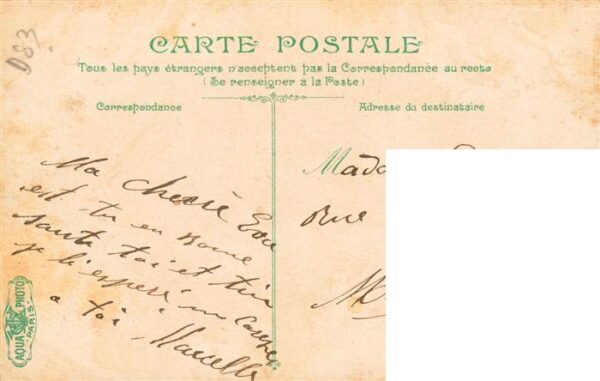 D83.
CARTE POSTALE
Tous les pays étrangers n'acceptent pas la Correspondance au recto
(Se renseigner à la Poste)
Correspondance
Adresse du destinataire
Ma cherè Eva
est tu en bonne
santé toi et tin
je l'esperè un
a toi Marcelle
Mada
Rue
M
AQUA PHOTO
PARIS